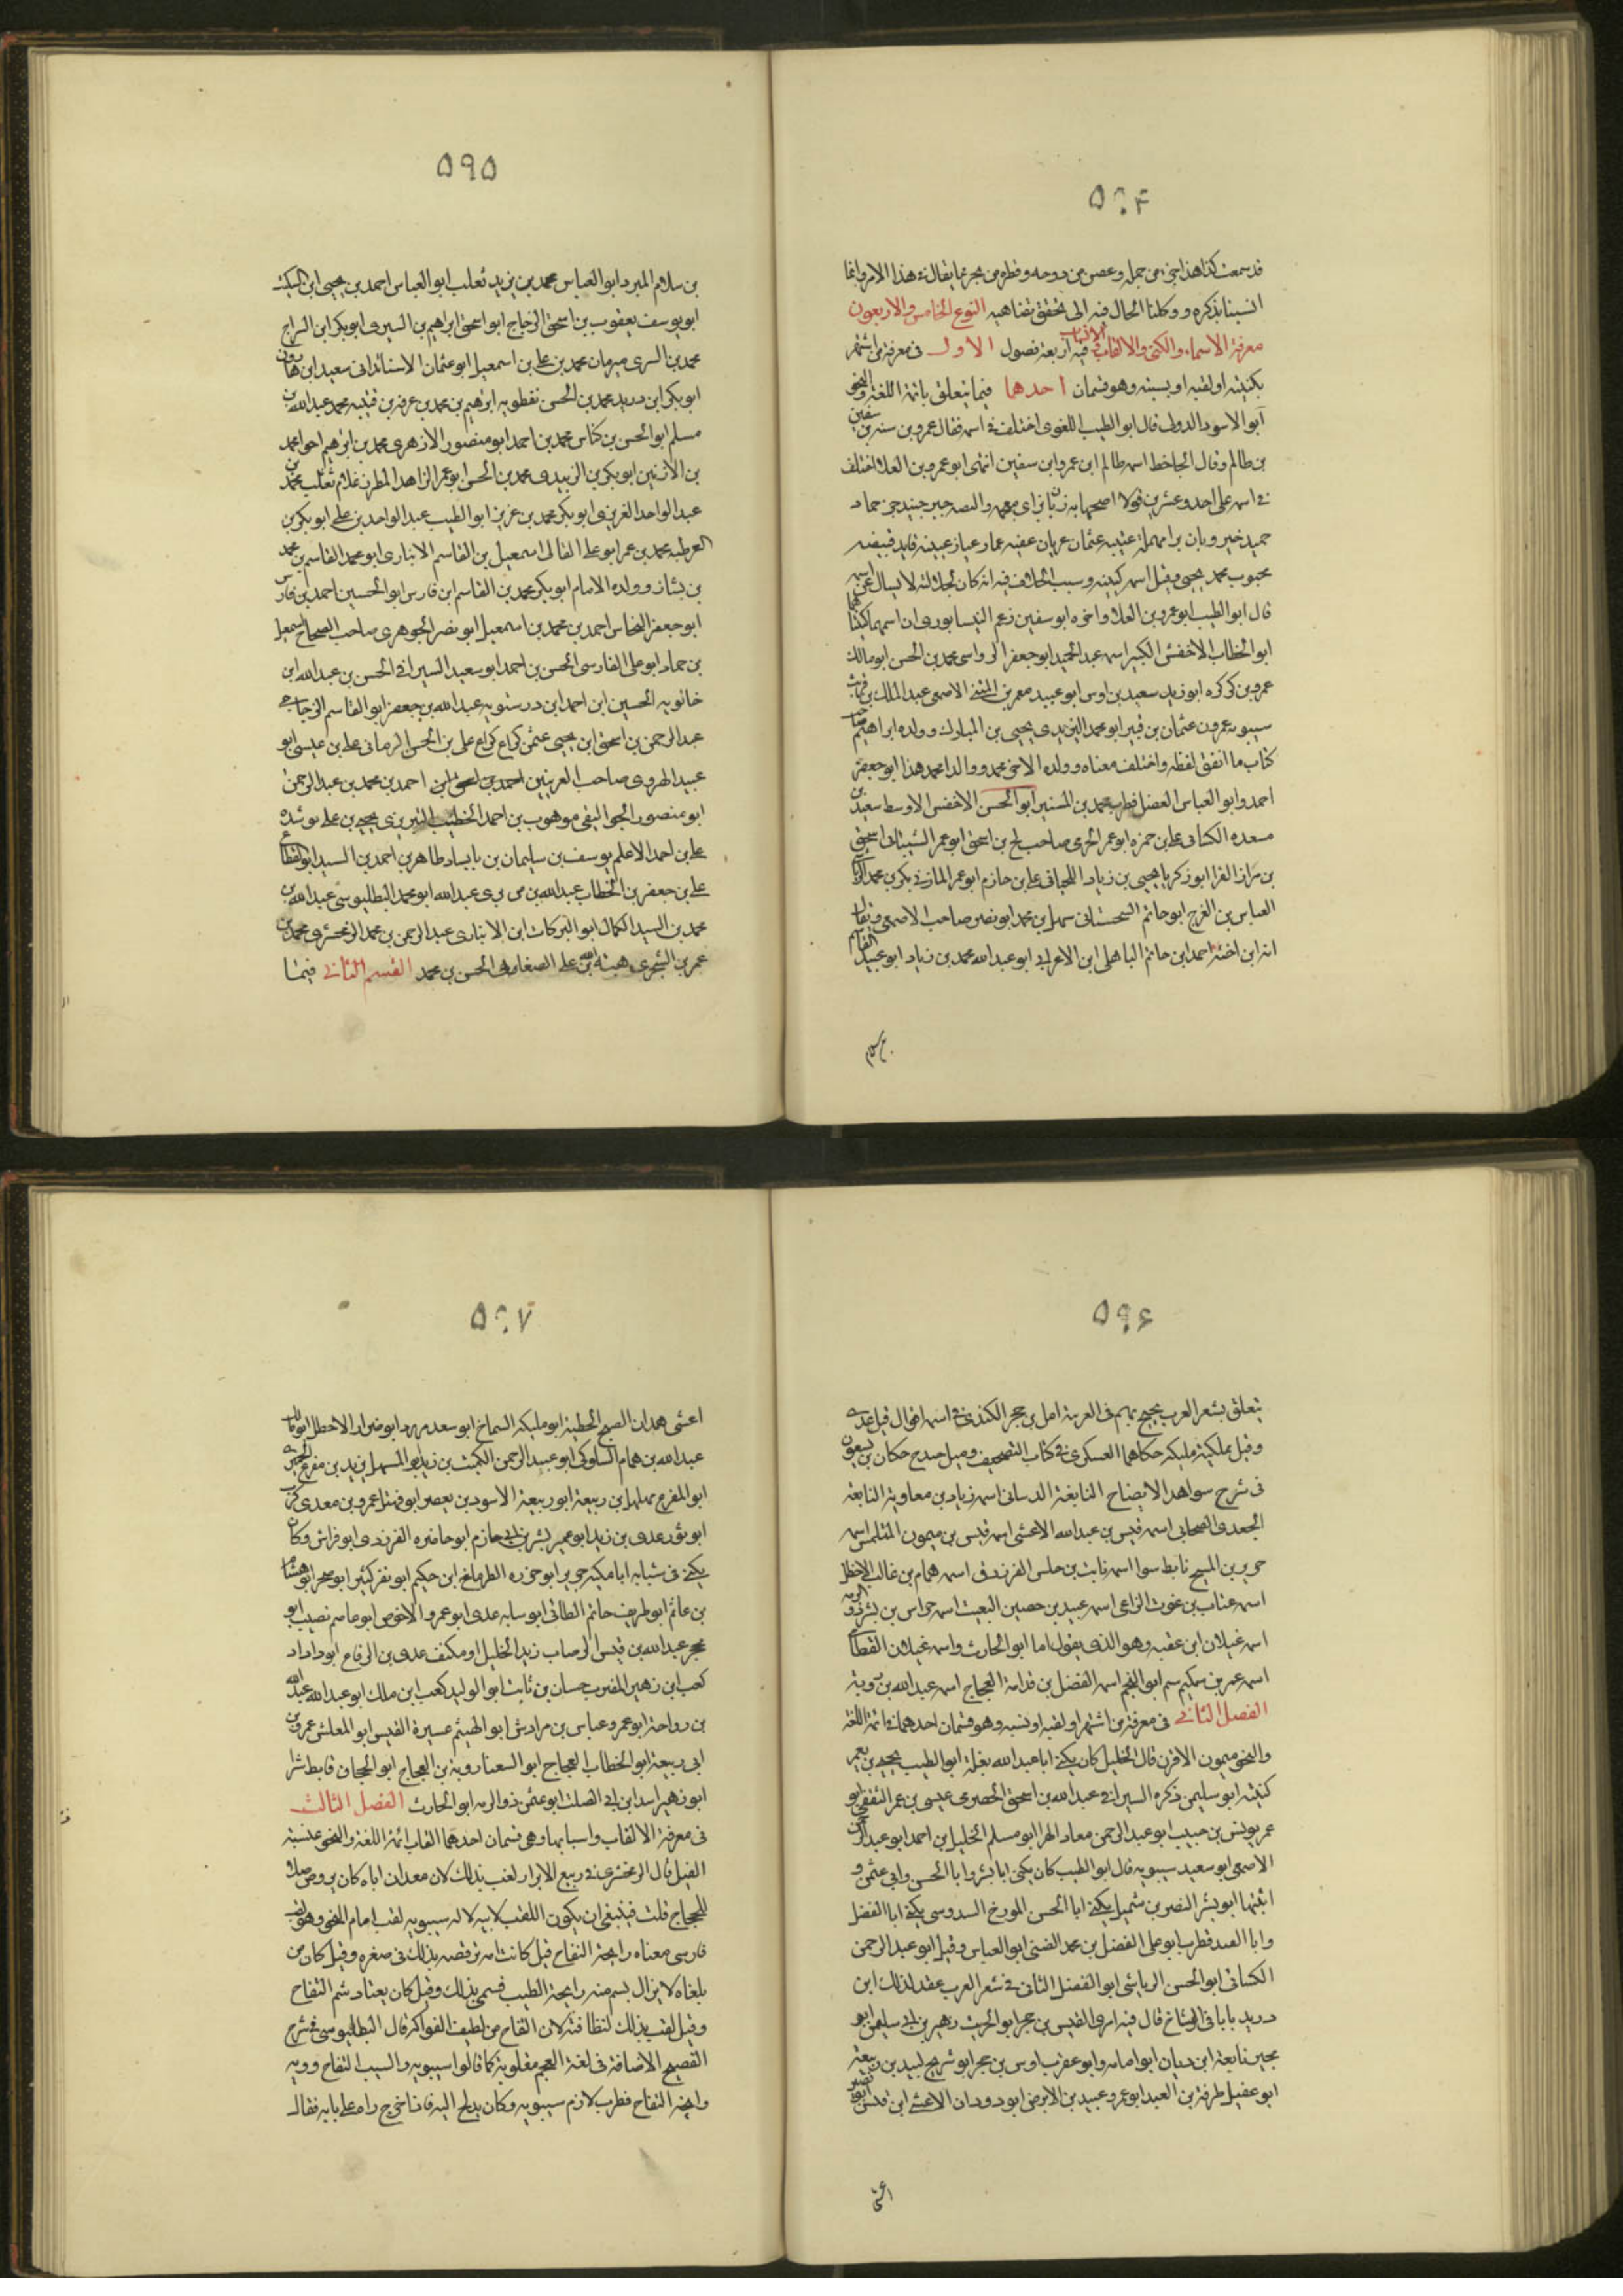 ٥٩۴
قد سمعت كنا هذا من جمل وعصن من دوحه وقطره من بحر مما يقال في هذا الامر وانما
انسينا بذكره ووكلنا الحال فيه الى تحقق تفاهيه النوع الخامس والاربعون
معرفة الاسماء والكنى والالقاب والانساب فيه اربعة فصول الاول في معرفة من اشتهر
بكنيته او لقبه او بنسبته وهو قسمان احدهما فيما يتعلق بائمة اللغة والنحو
ابو الاسود الدولى قال ابو الطيب اللغوى اختلف في اسمه فقال عمرو بن سفين بن
بن ظالم وقال الجاحظ اسمه ظالم ابن عمرو ابن سفين انتهى ابو عمرو بن العلا اختلف
في اسمه على احد وعشرين قولا اصحها زبان بزاى معجمه جبر جنيد جز حماد
حميد خير وبان برا مهملة عتيبه عثمان عريان عقبه عمار عيار عيينه قايد قبيضه
محبوب محمد يحيى وقيل اسمه كنيته وسبب الخلاف فيه انه كان لجلالته لا يسال عن اسمه
قال ابو الطيب ابو عمرو بن العلا واخوه ابو سفين زعم النيسابورى ان اسمهما كنيتاهما
ابو الخطاب الاخفش الكبير اسمه عبد الحميد ابو جعفر الرواسى محمد بن الحسن ابو مالك
عمرو بن كركره ابو زيد سعيد بن اوس ابو عبيد معمر بن المثنى الاصمعى عبد الملك بن قريب
سيبويه عمرو بن عثمان بن قنبر ابو محمد اليزيدى يحيى بن المبارك وولده ابراهيم صاحب
كتاب ما اتفق لفظه واختلف معناه وولده الاخر محمد ووالدا محمد هذا ابو جعفر
احمد وابو العباس الفضل قطرب محمد بن المستنير ابو الحسن الاخفش الاوسط سعيد بن
مسعده الكسائى على بن حمزه ابو عمر الجرمى صالح بن اسحق ابو عمر الشيبانى اسحق
بن مرار الفرا ابو زكريا يحيى بن زياد اللحيانى على بن حازم ابو عمر المازنى بكر بن محمد
العباس بن الفرج ابو حاتم السجستانى سهل بن محمد ابو نصر صاحب الاصمعى ويقال
انه ابن اخته احمد ابن حاتم الباهلى ابن الاعرابي ابو عبد الله محمد بن زياد ابو عبيد القاسم
بن سلام
٥٩٥
بن سلام المبرد ابو العباس محمد بن يزيد ثعلب ابو العباس احمد بن يحيى ابن السكيت
ابو يوسف يعقوب بن اسحق الزجاج ابو اسحق ابراهيم بن السرى ابو بكر ابن السراج
محمد بن السرى مبرمان محمد بن على بن اسمعيل ابو عثمان الاشناندانى سعيد ابن هارون
ابو بكر ابن دريد محمد بن الحسن نفطويه ابرهيم بن محمد بن عرفه بن قتيبه محمد عبد الله بن
مسلم ابو الحسن بن كناس محمد بن احمد ابو منصور الازهرى محمد بن ابرهيم احوا محمد
بن الازنين ابو بكر بن الزبيدى محمد بن الحسن ابو عمر الزاهد المطرز غلام ثعلب محمد بن
عبد الواحد العزيزى ابو بكر محمد بن عزيز ابو الطيب عبد الواحد بن على ابو بكر بن
القرطيه محمد بن عمر ابو على القالى اسمعيل بن القاسم الانبارى ابو محمد القاسم بن محمد
بن بشار وولده الامام ابو بكر محمد بن القاسم ابن فارس ابو الحسين احمد بن فارس
ابو جعفر النحاس احمد بن محمد بن اسمعيل ابو نصر الجوهرى صاحب الصحاح اسمعيل
بن حماد ابو على الفارسى الحسن بن احمد ابو سعيد السيرافى الحسن بن عبد الله ابن
خالويه الحسين ابن احمد ابن درستويه عبد الله بن جعفر ابو القاسم الزجاجى
عبد الرحمن بن اسحق ابن يحيى عثمن كراع كراع على بن الحسن الرمانى على بن عيسى ابو
عبيد الهروى صاحب الغريبين احمد بن محمد بن عبد الرحمن
ابو منصور الجواليقى موهوب بن احمد الخطيب التبريزى يحيى بن على
على بن احمد الاعلم يوسف بن سليمان بن بابشاد طاهر بن احمد بن السيد ابو القطاع
على بن جعفر بن الخطاب عبد الله ابو محمد البطليوسى عبد الله بن
محمد بن السيد الكمال ابو البركات ابن الانبارى عبد الرحمن بن محمد الزمخشرى محمد بن
عمر بن الشجرى هبة الله بن على الصغانى الحسن بن محمد القسم الثانى فيما
٥٩۶
يتعلق بشعر العرب امل بن حجر الكندى في اسمه اقوال قيل عدى
وقيل مليكة مليكه حكاهما العسكرى في كتاب التصحيف وقيل
فى شرح شواهد الايضاح النابغة الذبيانى اسمه زياد بن معاوية النابغة
الجعدى الصحابى اسمه قيس بن عبد الله الاعشى اسمه قيس بن ميمون المتلمس اسمه
جرير بن المسيح تابط سوا اسمه ثابت بن جلس الفرزدق اسمه همام بن غالب الاخطل
اسمه عتاب بن غوث الراعى اسمه عبيد بن حصين البعيث اسمه حراس بن بشر ذو الرمه
اسمه غيلان ابن عقبه وهو الذى يقول اما ابو الحارث واسمه غيلان القطامى
اسمه عمر بن سكيم ابو النجم اسمه الفضل بن قدامة العجاج اسمه عبد الله بن روبة
الفصل الثانى فى معرفة من اشتهر او لقبه او نسبه وهو قسمان احدهما في ائمة اللغة
والنحو ميمون الاقرن قال الخليل كان يكنى ابا عبد الله ابو الطيب يحيى بن يعمر
كنيته ابو سليمن ذكره السيرافى عبد الله بن اسحق الحضرمى عيسى بن عمر الثقفى ابو
عمر يونس بن حبيب ابو عبد الرحمن معاد الهرا ابو مسلم الخليل بن احمد ابو عبد الرحمن
الاصمعى ابو سعيد سيبويه قال ابو الطيب كان يكنى ابا بشر وابا الحسن وابى عثمن و
اثبتها ابو بشر النضر بن شميل يكنى ابا الحسن المورخ السدوسى يكنى ابا الفضل
وابا الفيد قطرب ابو على الفضل بن محمد الضبى ابو العباس وقيل ابو عبد الرحمن
الكسائى ابو الحسن الرياشى ابو الفضل الثانى في شعر العرب عقد لذلك ابن
دريد بابا فى الوشاح قال فيه امرئ القيس بن حجر ابو الحرث زهير بن ابى سلمى ابو
بجير نابغة ابن ديبان ابو امامه وابو عقرب اوس بن حجر ابو شريح لبيد بن ربيعة
ابو عقيل طرفة بن العبد ابو عمرو عبيد بن الابرص ابو دودان الاعشى ابن قيس ابو بصير
اعشى
٥٩٧
اعشى همدان ابو المصبح الحطية ابو مليكه الشماخ ابو سعد مزرد ابو ضرار الاخطل ابو مالك
عبد الله بن همام السلوكى ابو عبد الرحمن الكميت بن زيد ابو المستهل يزيد بن مفرغ الحميرى
ابو المفرغ مهلهل بن ربيعة ابو ربيعة الاسود بن يعصر ابو عمرو بن معدى كرب
ابو ثور عدى بن زيد ابو عمير بشر بن ابى حازم ابو حاضره الفرزدق ابو فراس وكان
يكنى فى شبابه ابا مكيه جرير ابو حزره الطرماح ابن حكيم ابو نفر كثير ابو صخر ابو هشام
بن غانم ابو طريف حاتم الطائى ابو سبابه عدى ابو عمرو الاخوص ابو عاصم نصيب ابو
محجر عبد الله بن قيس الرصاب زيد الخليل او مكنف عدى بن الرقاع ابو داداد
كعب ابن زهير المضرب حسان بن ثابت ابو الوليد كعب ابن ملك ابو عبد الله عبد الله
بن رواحة ابو عمرو عباس بن مرداس ابو الهيثم عسيرة القيس ابو المعلش عمرو بن
ابى ربيعة ابو الخطاب العجاج ابو السعثا روبة بن العجاج ابو الحجاف تابط شرا
ابو زهير اسد ابن ابى الصلت ابو عثمن ذو الرمه ابو الحارث الفصل الثالث
فى معرفة الالقاب واسبابها وهى قسمان احدهما القاب ائمة اللغة والنحو عنبسة
الفيل قال الزمخشرى في ربيع الابرار لقب بذلك لان معدان اباه كان يروض فيلا
للحجاج قلت فينبغى ان يكون اللقب لابيه لا له سيبويه لقب امام النحو وهو لقب
فارسى معناه رايحة التفاح قيل كانت امه ترقصه بذلك فى صغره وقيل كان من
يلقاه لا يزال يشم منه رايحة الطيب فسمى بذلك وقيل كان يعتاد شم التفاح
وقيل لقب بذلك لنظافته لان التفاح من لطيف الفواكه قال البطليوسى في شرح
الفصيح الاضافة فى لغة العجم مقلوبة كما قالوا سيبويه والسيب التفاح وويه
رايحه التفاح قطرب لازم سيبويه وكان يدلج اليه فاذا خرج راه على بابه فقال